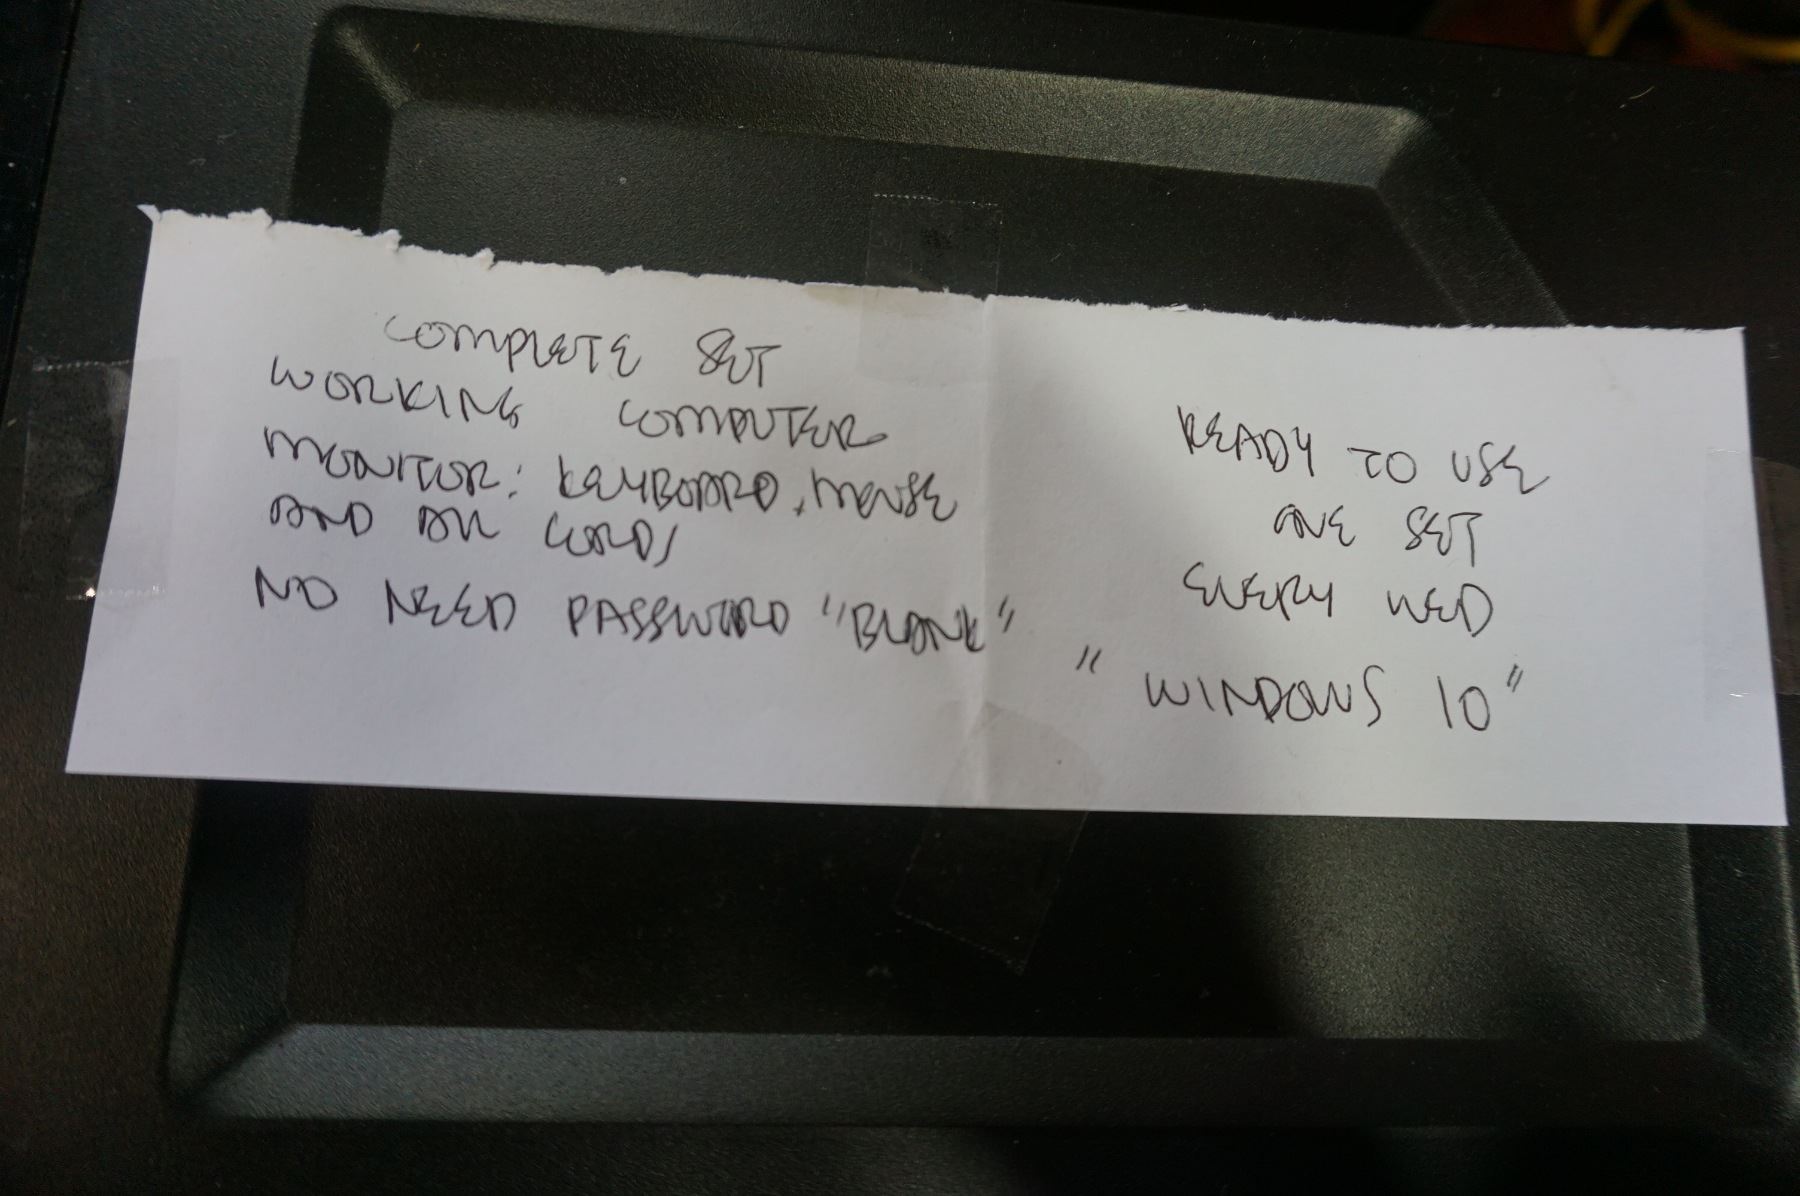 COMPLETE SET
WORKING COMPUTER
MONITOR: KEYBOARD, MOUSE
AND ALL CORDS
NO NEED PASSWORD "BLANK"
READY TO USE
ONE SET
EVERY WED
"WINDOWS 10"